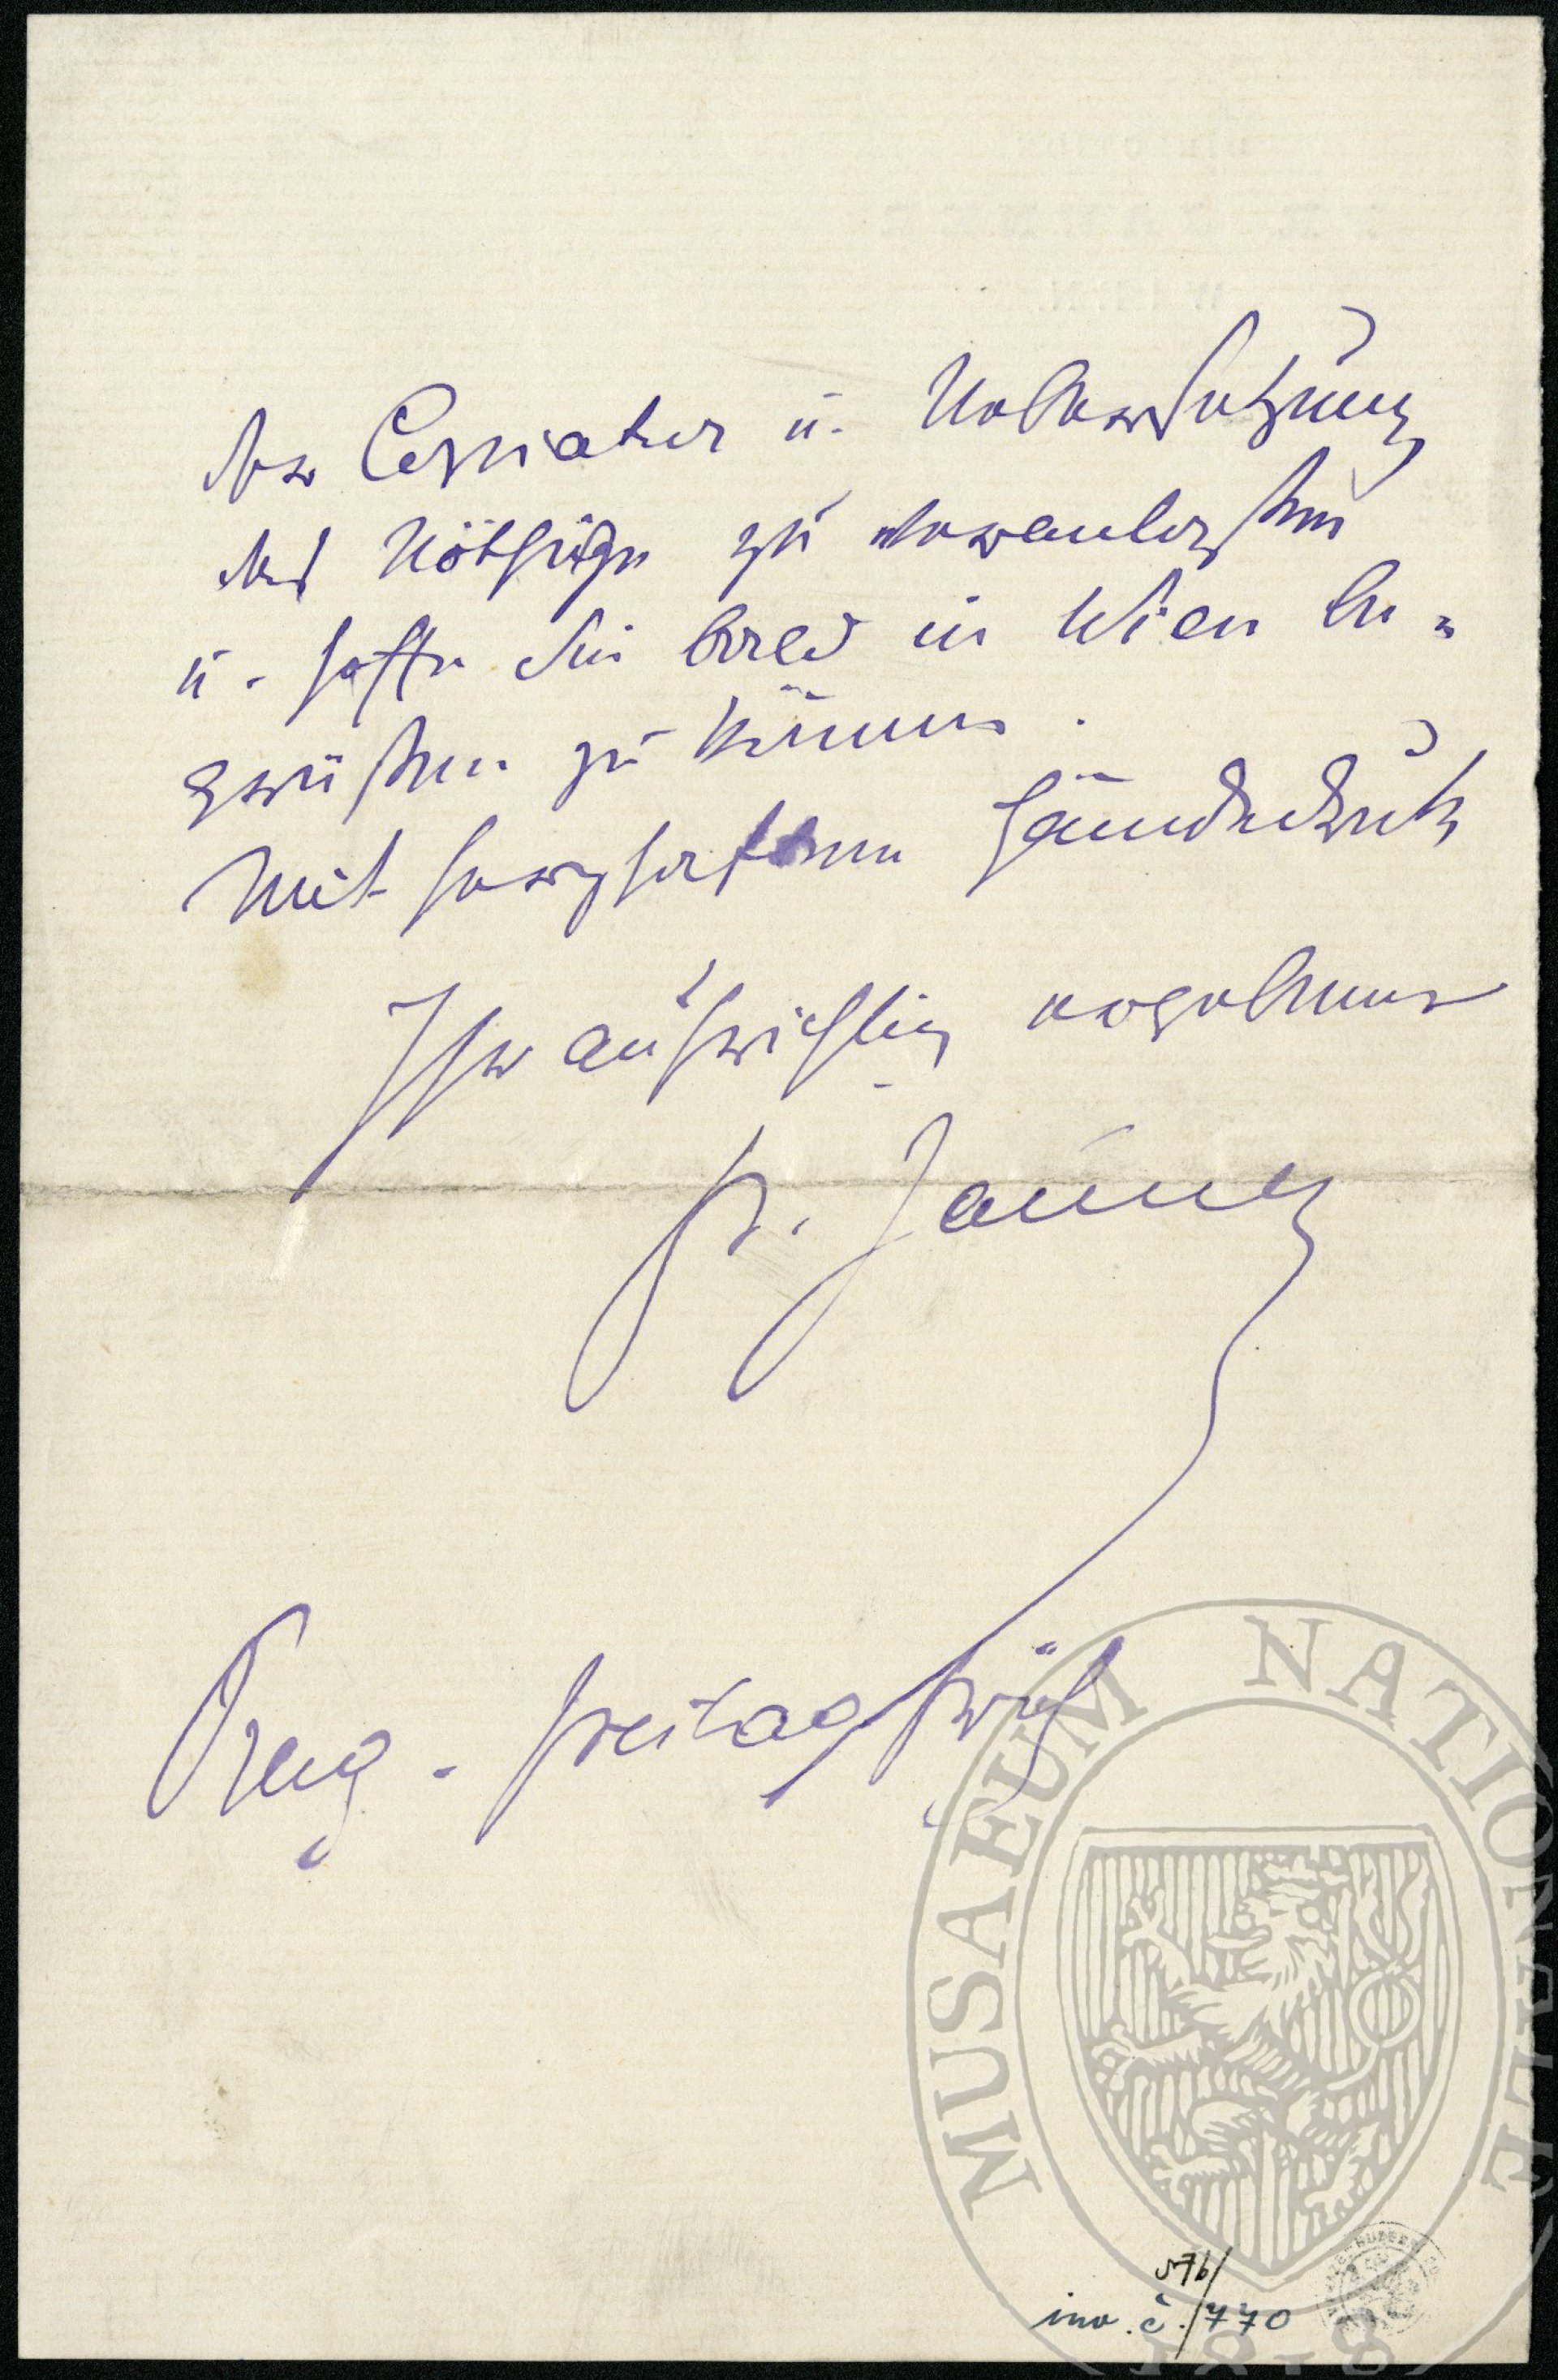 der Copiatur u. Uebersetzung
das Nöthige zu veranlassen
u. hoffe Sie bald in Wien be=
grüßen zu können.
Mit herzhaftem Händedruck
Ihr aufrichtig ergebener
Fr. Jauner
Prag - Freitag früh
MUSAEUM NATIONALE
1818
576/
inv. č. 770